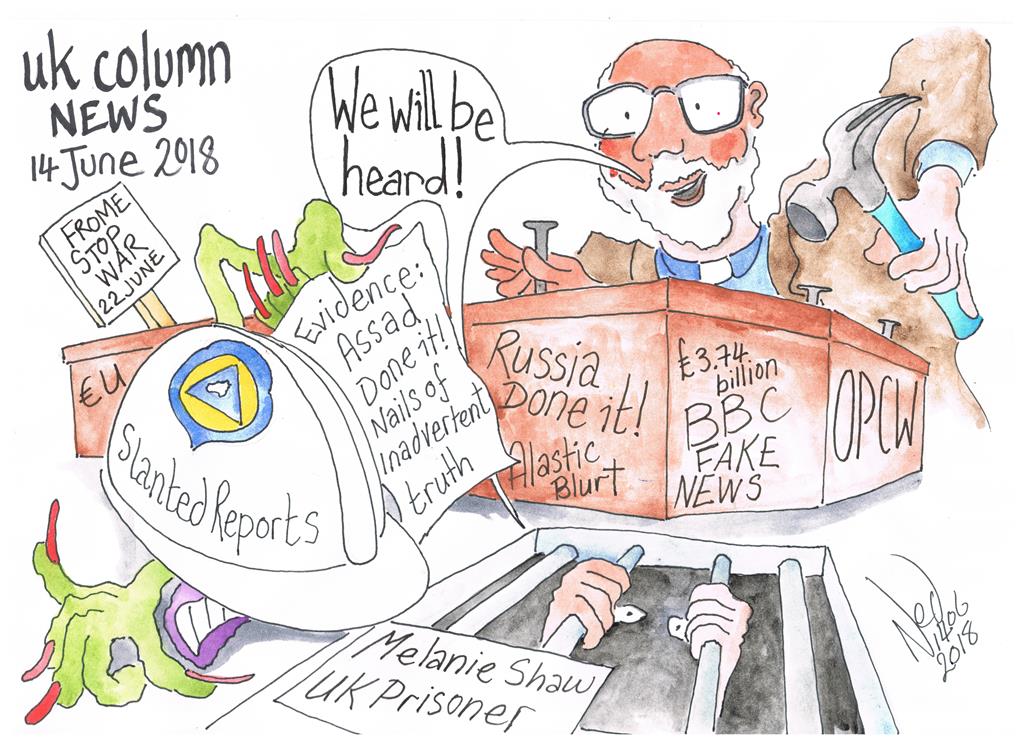 uk column
NEWS
14 June 2018
We will be
heard!
FROME
STOP
WAR
22 JUNE
€U
Evidence:
Assad
Done it!
Nails of
inadvertent
truth
Slanted Reports
Russia
Done it!
Alastic
Blurt
£3.74
billion
BBC
FAKE
NEWS
OPCW
Melanie Shaw
UK Prisoner
2018